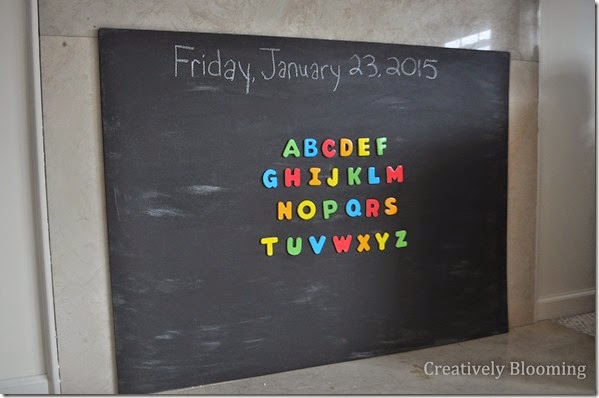 Friday, January 23, 2015
ABCDEF
GHIJKLM
NOPQRS
TUVWXYZ
Creatively Blooming